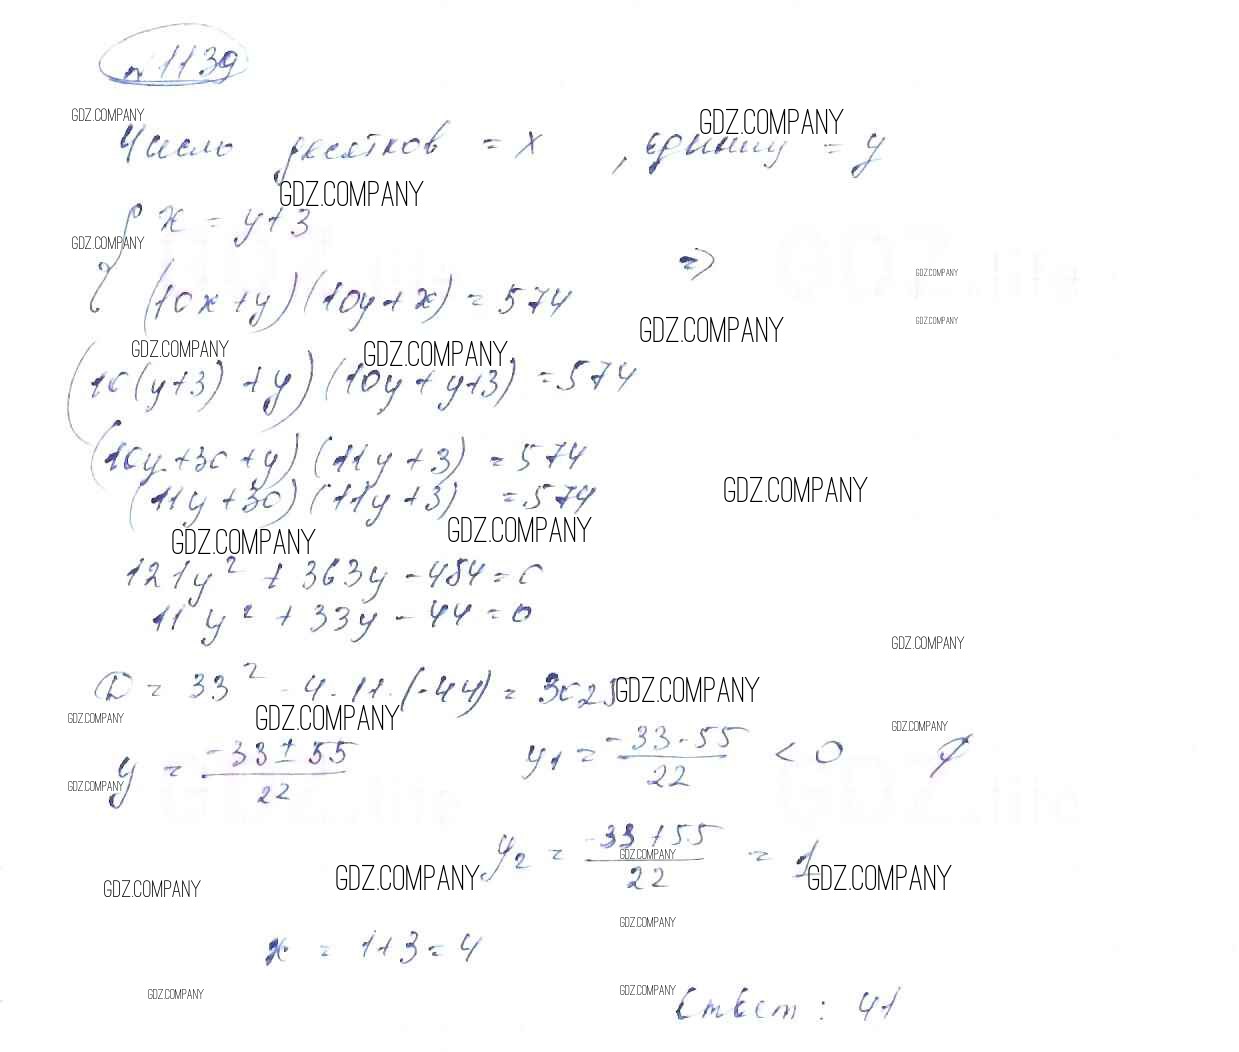 №1139
GDZ.COMPANY GDZ.COMPANY
Число десятков = x , единиц = y
GDZ.COMPANY
{ x = y+3
GDZ.COMPANY
=> GDZ.COMPANY
(10x+y)(10y+x) = 574
GDZ.COMPANY
GDZ.COMPANY
GDZ.COMPANY GDZ.COMPANY
(10(y+3)+y)(10y+y+3) = 574
(10y+30+y)(11y+3) = 574
(11y+30)(11y+3) = 574
GDZ.COMPANY
GDZ.COMPANY GDZ.COMPANY
121y² + 363y - 484 = 0
11y² + 33y - 44 = 0
GDZ.COMPANY
D = 33² - 4·11·(-44) = 3025
GDZ.COMPANY
GDZ.COMPANY GDZ.COMPANY GDZ.COMPANY
y = (-33±55)/22 y₁ = (-33-55)/22 < 0 ∅
GDZ.COMPANY
y₂ = (-33+55)/22 = 1
GDZ.COMPANY
GDZ.COMPANY GDZ.COMPANY GDZ.COMPANY
GDZ.COMPANY
x = 1+3 = 4
GDZ.COMPANY GDZ.COMPANY
Ответ: 41